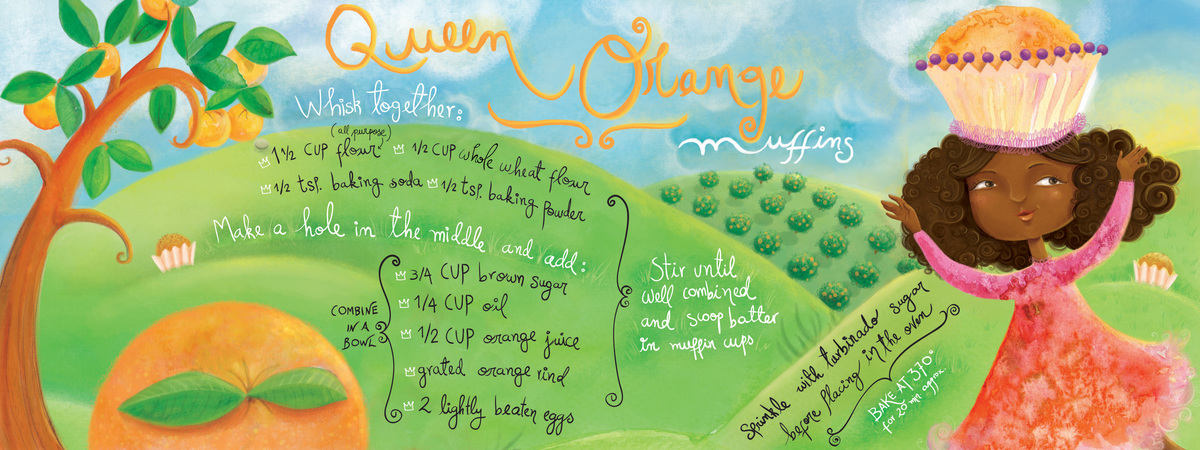 Queen Orange
muffins
Whisk together:
(all purpose)
1 1/2 CUP flour 1/2 CUP whole wheat flour
1/2 tsp. baking soda 1/2 tsp. baking powder
Make a hole in the middle and add:
COMBINE
IN A
BOWL
3/4 CUP brown sugar
1/4 CUP oil
1/2 CUP orange juice
grated orange rind
2 lightly beaten eggs
Stir until
well combined
and scoop batter
in muffin cups
Sprinkle with turbinado sugar
before placing in the oven
BAKE AT 370°
for 20 mn. approx.